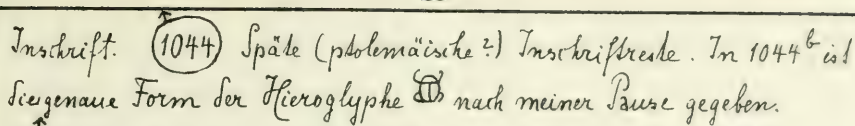 Inschrift. 1044 Späte (ptolemäische?) Inschriftreste. In 1044 b ist
die genaue Form der Hieroglyphe nach meiner Pause gegeben.